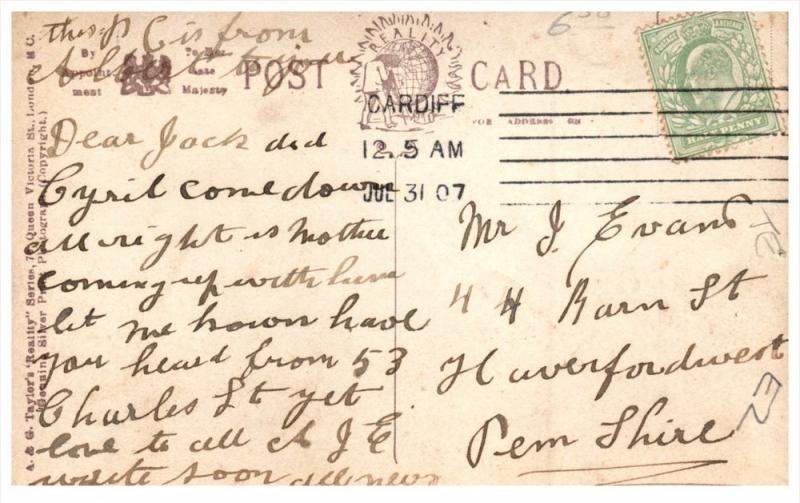 this P C is from
By
Appointment
To Her
late
Majesty
POST CARD
REALITY
FOR ADDRESS ON
CARDIFF
12.5 AM
JUL 31 07
HALFPENNY
POSTAGE
6
Dear Jack did
Cyril come down
all right is Mother
coming up with him
let me hown have
you heard from 53
Charles St yet
love to all A J E
write soon all news
Mr J. Evans
44 Barn St
Haverfordwest
Pem Shire
A. & G. Taylor's "Reality" Series, Queen Victoria St., London, E.C.
(Genuine Silver Print Photograph Copyright.)